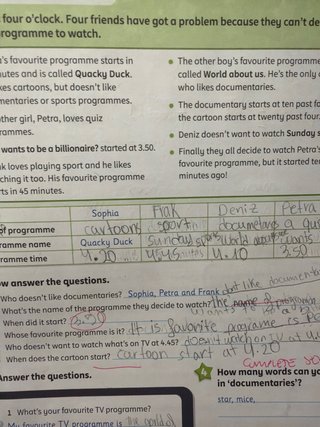 four o'clock. Four friends have got a problem because they can't de
rogramme to watch.
's favourite programme starts in
nutes and is called Quacky Duck.
kes cartoons, but doesn't like
mentaries or sports programmes.
ther girl, Petra, loves quiz
rammes.
wants to be a billionaire? started at 3.50.
nk loves playing sport and he likes
ching it too. His favourite programme
rts in 45 minutes.
The other boy's favourite programme
called World about us. He's the only
who likes documentaries.
The documentary starts at ten past fo
the cartoon starts at twenty past four.
Deniz doesn't want to watch Sunday s
Finally they all decide to watch Petra's
favourite programme, but it started te
minutes ago!
Sophia Frnk Deniz Petra
of programme cartoons sport documetans a qui
ramme name Quacky Duck Sunday sports World about us wants
ramme time 4.20 4.45 4.10 3.50
ow answer the questions.
Who doesn't like documentaries? Sophia, Petra and Frank don't like documenta
What's the name of the programme they decide to watch? The name programme
wants
When did it start? 3.50
Whose favourite programme is it? It is favorite programe is
Who doesn't want to watch what's on TV at 4.45? doesn't watch on TV at 4.
When does the cartoon start? cartoon start at 4.20
COMPLETE
Answer the questions.
4 How many words can y
in 'documentaries'?
star, mice,
1 What's your favourite TV programme?
My favourite TV programme is the world